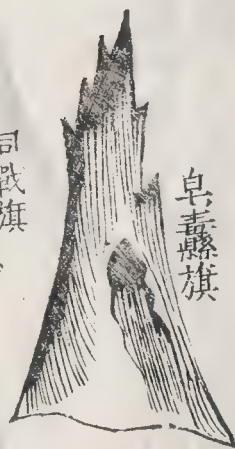 皂纛旗
戰旗